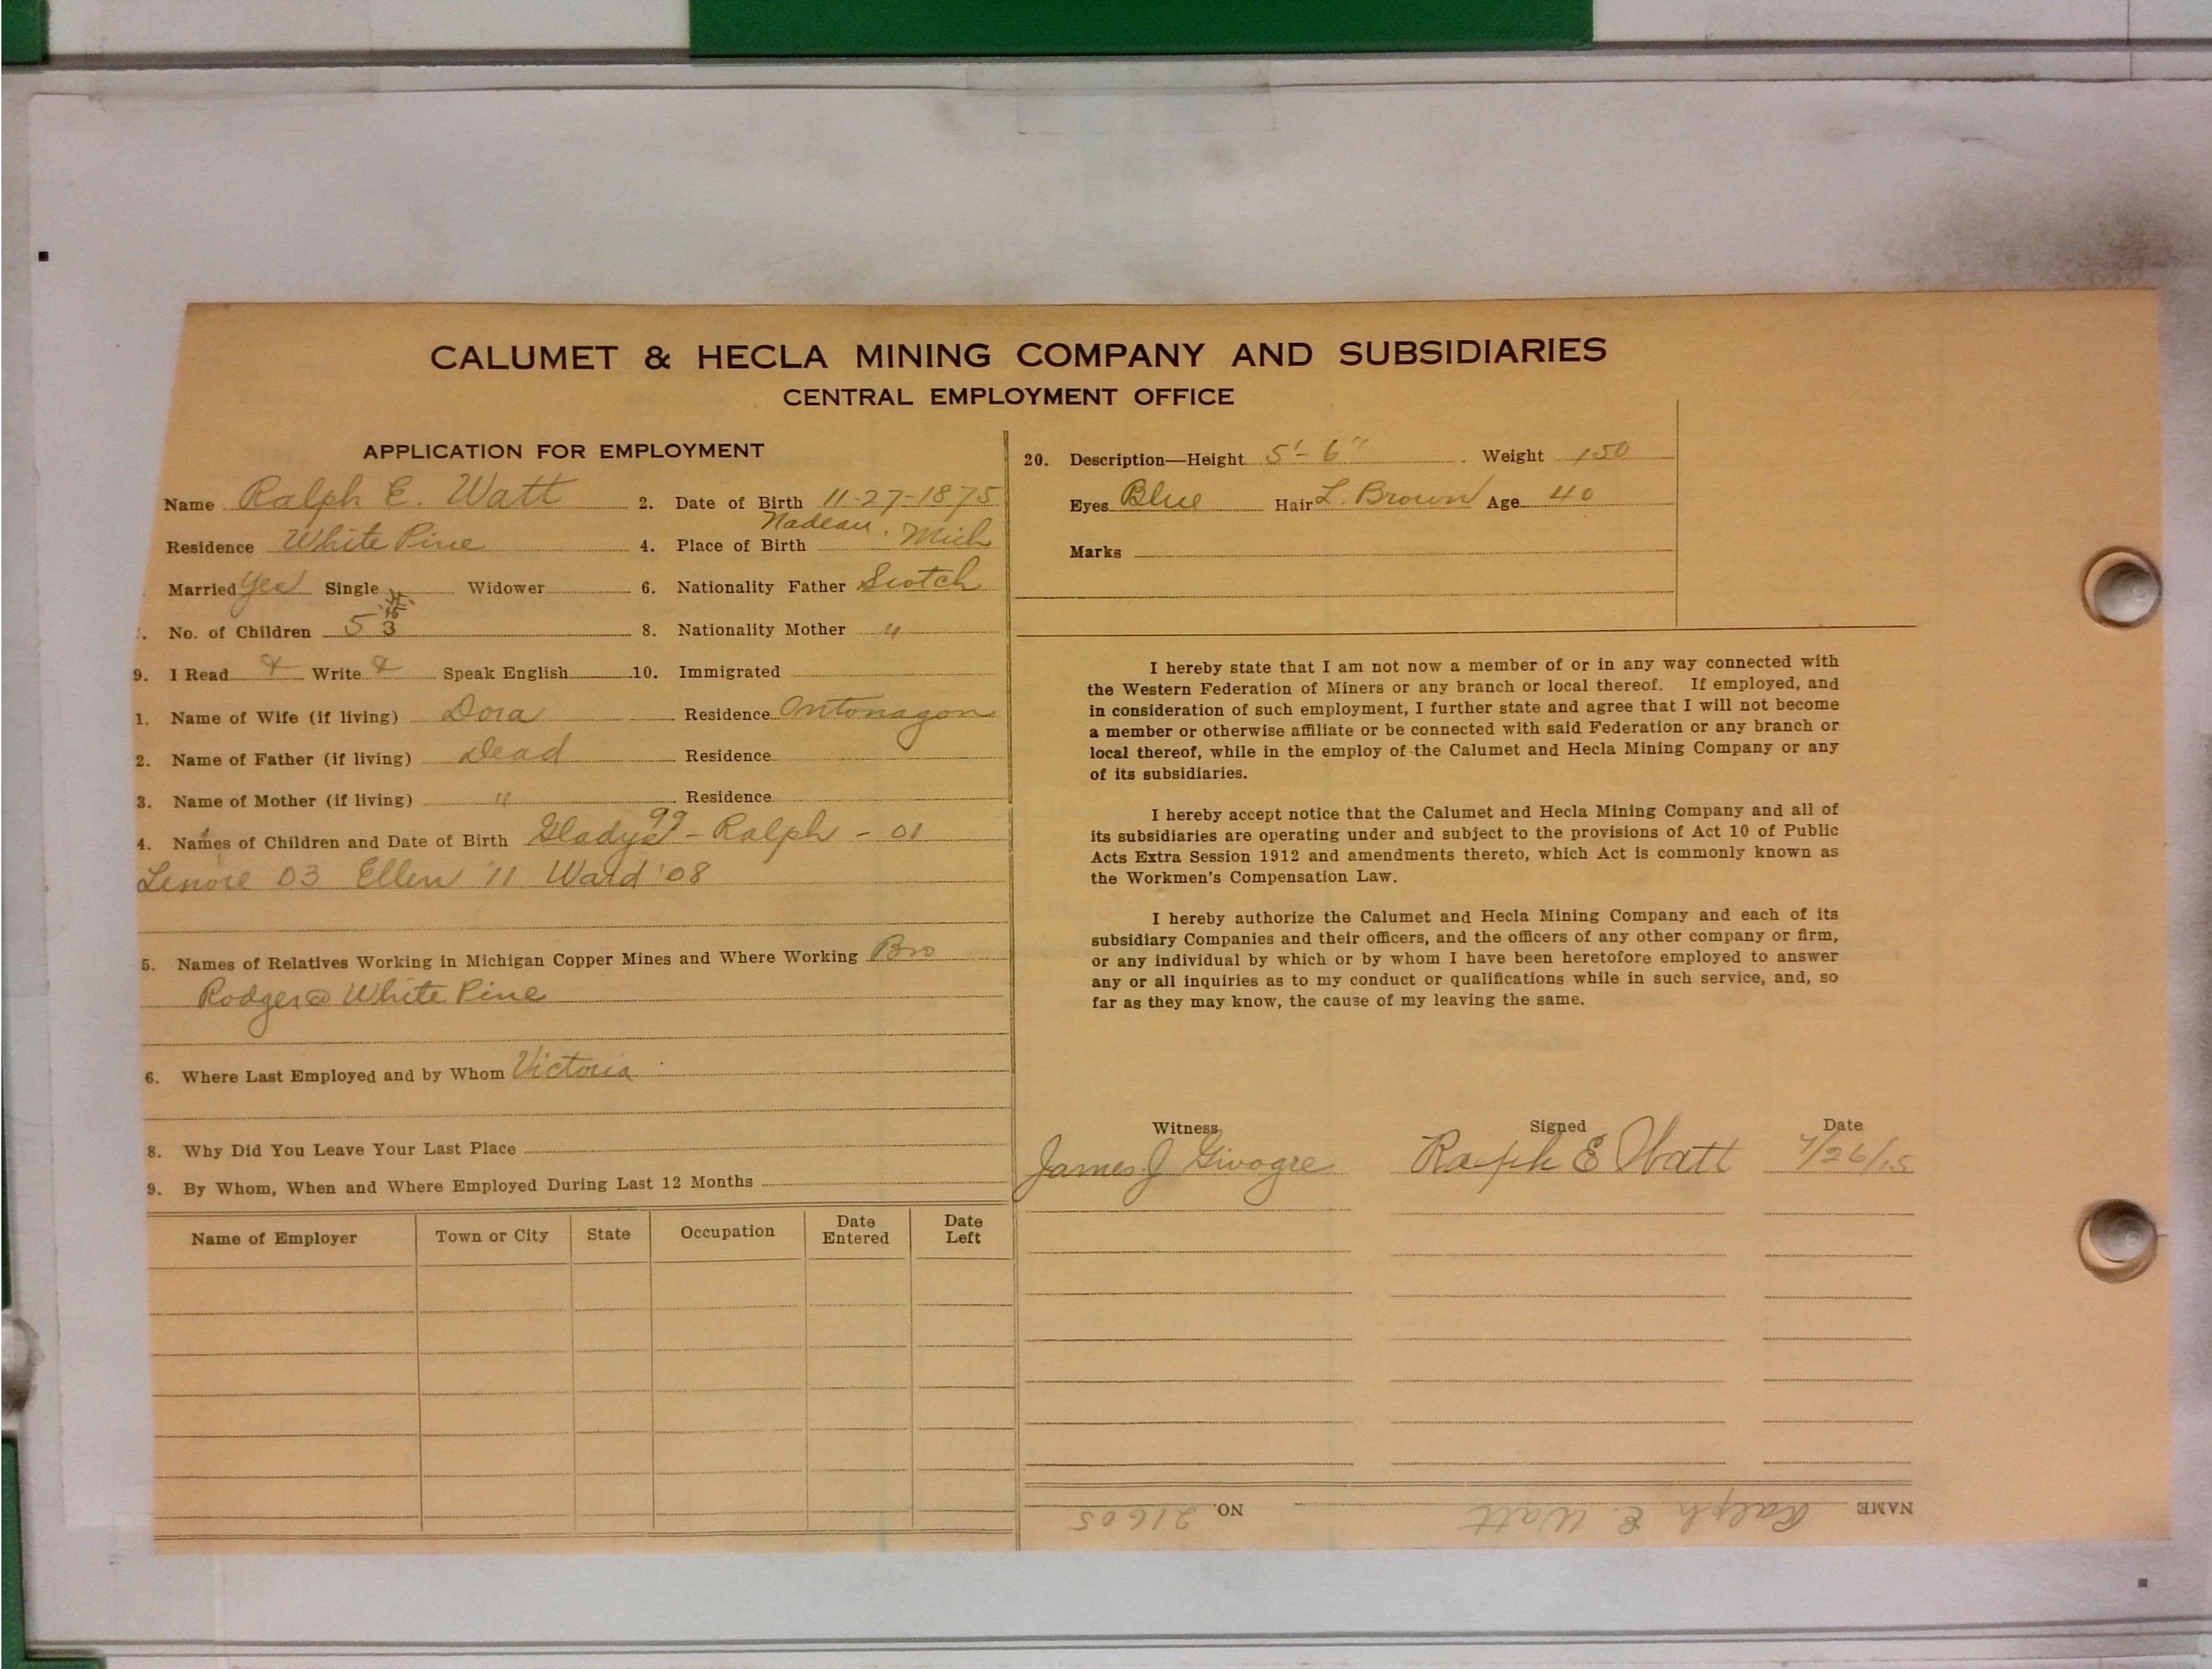 CALUMET & HECLA MINING COMPANY AND SUBSIDIARIES
CENTRAL EMPLOYMENT OFFICE
APPLICATION FOR EMPLOYMENT
Name Ralph E. Watt 2. Date of Birth 11-27-1875
Residence White Pine 4. Place of Birth Nadeau, Mich
Married Yes Single Widower 6. Nationality Father Scotch
No. of Children 5 3 8. Nationality Mother "
9. I Read & Write & Speak English 10. Immigrated
1. Name of Wife (if living) Dora Residence Ontonagon
2. Name of Father (if living) Dead Residence
3. Name of Mother (if living) " Residence
4. Names of Children and Date of Birth Gladys 99 - Ralph - 01
Lenore 03 Ellen '11 Ward '08
5. Names of Relatives Working in Michigan Copper Mines and Where Working Bro
Rodger @ White Pine
6. Where Last Employed and by Whom Victoria
8. Why Did You Leave Your Last Place
9. By Whom, When and Where Employed During Last 12 Months
Name of Employer Town or City State Occupation Date Entered Date Left
20. Description—Height 5'-6" Weight 150
Eyes Blue Hair L. Brown Age 40
Marks
I hereby state that I am not now a member of or in any way connected with
the Western Federation of Miners or any branch or local thereof. If employed, and
in consideration of such employment, I further state and agree that I will not become
a member or otherwise affiliate or be connected with said Federation or any branch or
local thereof, while in the employ of the Calumet and Hecla Mining Company or any
of its subsidiaries.
I hereby accept notice that the Calumet and Hecla Mining Company and all of
its subsidiaries are operating under and subject to the provisions of Act 10 of Public
Acts Extra Session 1912 and amendments thereto, which Act is commonly known as
the Workmen's Compensation Law.
I hereby authorize the Calumet and Hecla Mining Company and each of its
subsidiary Companies and their officers, and the officers of any other company or firm,
or any individual by which or by whom I have been heretofore employed to answer
any or all inquiries as to my conduct or qualifications while in such service, and, so
far as they may know, the cause of my leaving the same.
Witness Signed Date
James J Givogre Ralph E Watt 7/26/15
NAME Ralph E. Watt NO. 21605